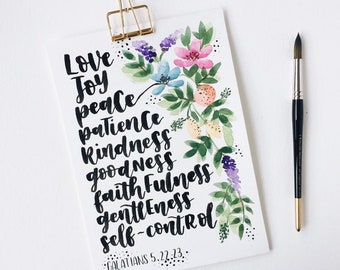 Love
Joy
peace
patience
kindness
goodness
faithfulness
gentleness
self-control
GALATIANS 5.22.23